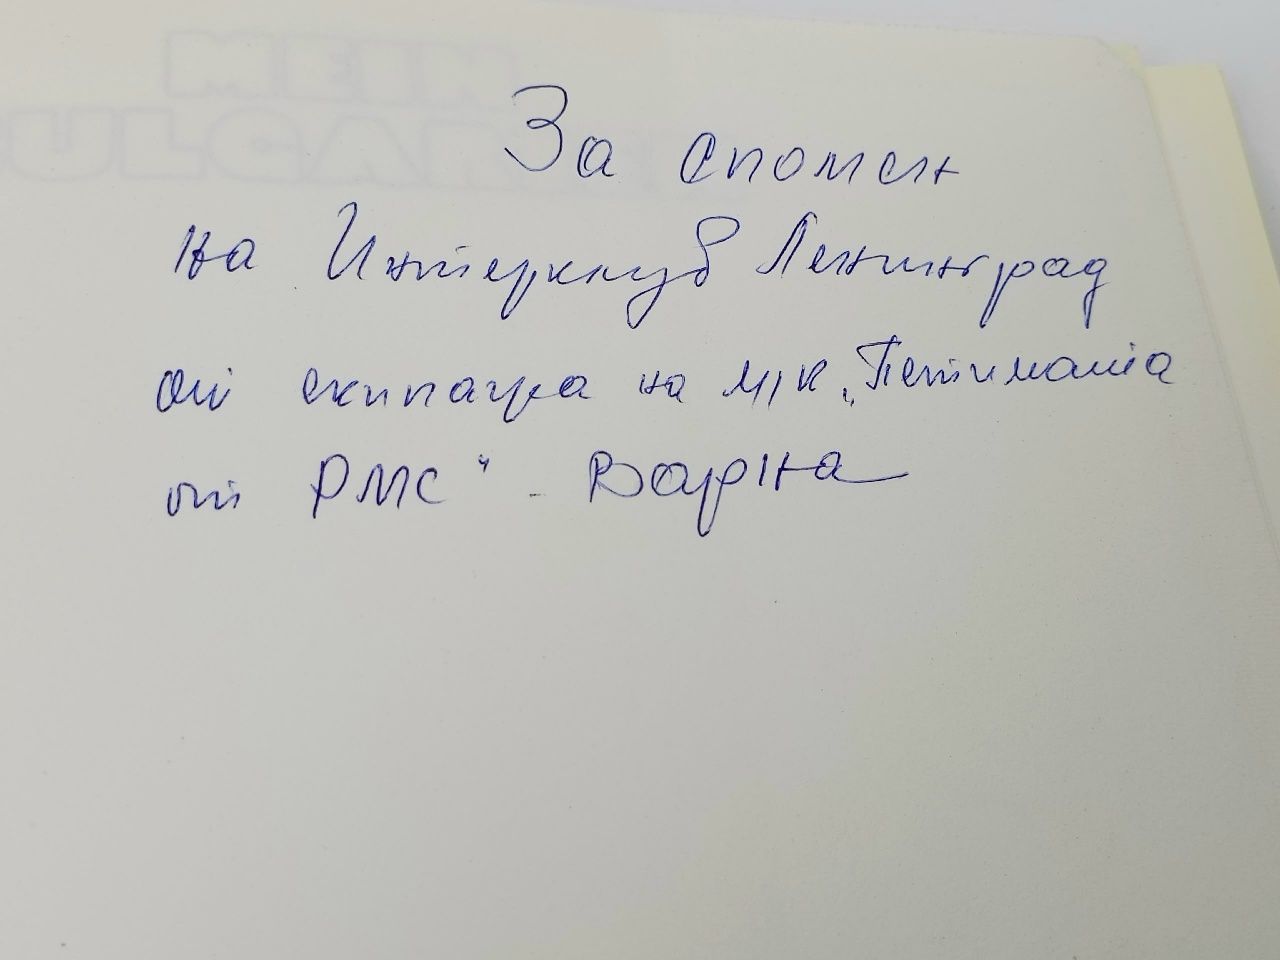 MEIN
BULGARIEN
За спомен
на Интерклуб Ленинград
от екипажа на м/к „Петимата
от РМС" - Варна